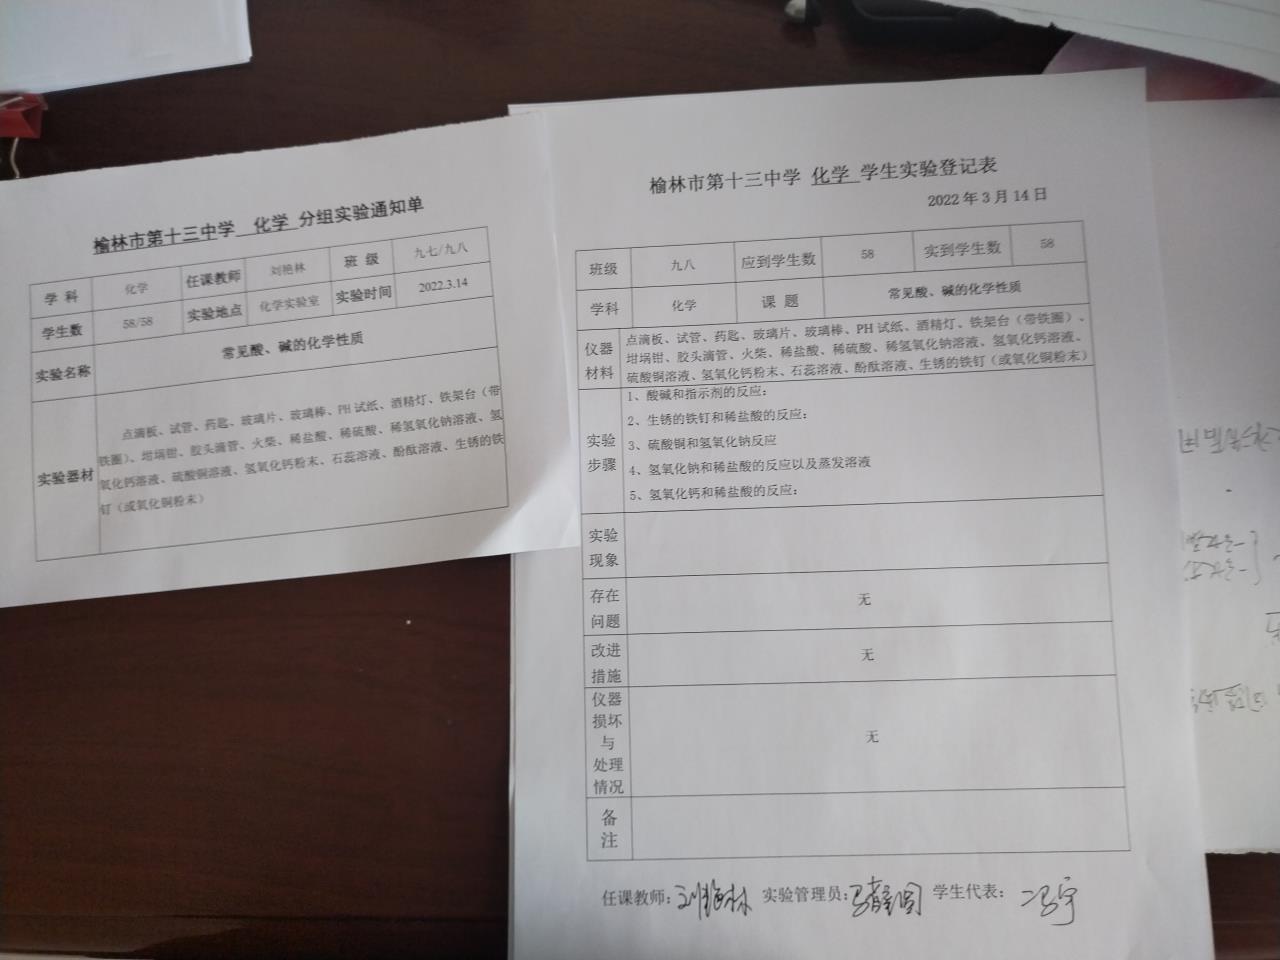 榆林市第十三中学 化学 分组实验通知单
学 科 化学 任课教师 刘艳林 班 级 九七/九八
学生数 58/58 实验地点 化学实验室 实验时间 2022.3.14
实验名称 常见酸、碱的化学性质
实验器材
点滴板、试管、药匙、玻璃片、玻璃棒、PH 试纸、酒精灯、铁架台（带
铁圈）、坩埚钳、胶头滴管、火柴、稀盐酸、稀硫酸、稀氢氧化钠溶液、氢
氧化钙溶液、硫酸铜溶液、氢氧化钙粉末、石蕊溶液、酚酞溶液、生锈的铁
钉（或氧化铜粉末）
榆林市第十三中学 化学 学生实验登记表
2022 年 3 月 14 日
班级 九八 应到学生数 58 实到学生数 58
学科 化学 课 题 常见酸、碱的化学性质
仪器
材料
点滴板、试管、药匙、玻璃片、玻璃棒、PH 试纸、酒精灯、铁架台（带铁圈）、
坩埚钳、胶头滴管、火柴、稀盐酸、稀硫酸、稀氢氧化钠溶液、氢氧化钙溶液、
硫酸铜溶液、氢氧化钙粉末、石蕊溶液、酚酞溶液、生锈的铁钉（或氧化铜粉末）
实验
步骤
1、酸碱和指示剂的反应：
2、生锈的铁钉和稀盐酸的反应：
3、硫酸铜和氢氧化钠反应
4、氢氧化钠和稀盐酸的反应以及蒸发溶液
5、氢氧化钙和稀盐酸的反应：
实验
现象
存在
问题
无
改进
措施
无
仪器
损坏
与
处理
情况
无
备
注
任课教师：刘艳林 实验管理员： 学生代表：冯宇